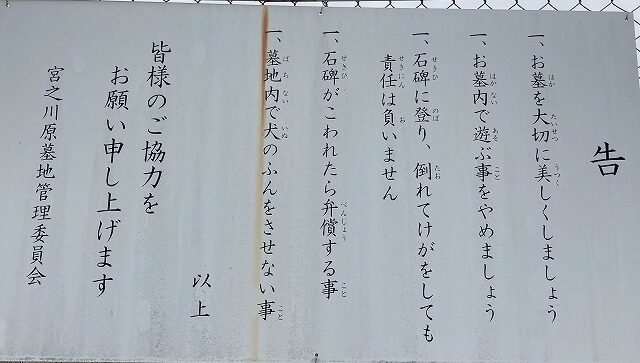 告
一、お墓を大切に美しくしましょう
一、お墓内で遊ぶ事をやめましょう
一、石碑に登り、倒れてけがをしても
責任は負いません
一、石碑がこわれたら弁償する事
一、墓地内で犬のふんをさせない事
以上
皆様のご協力を
お願い申し上げます
宮之川原墓地管理委員会